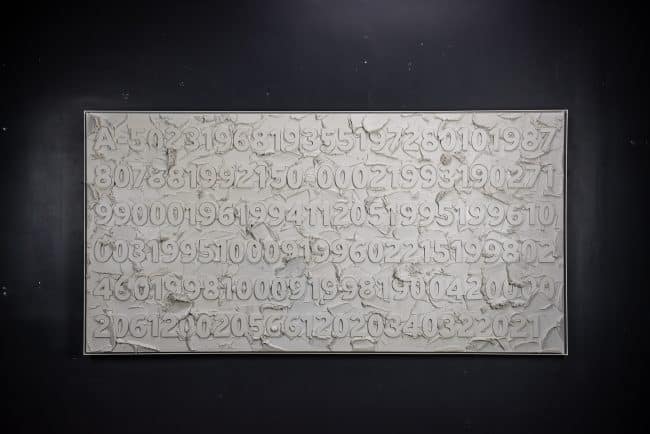 A-5023196819355197280101987
807881992150-00021993190271
99000196199411205199519961 0
003199510009199602215199802
4601998100091998190042000
2061200205661202034032202 1